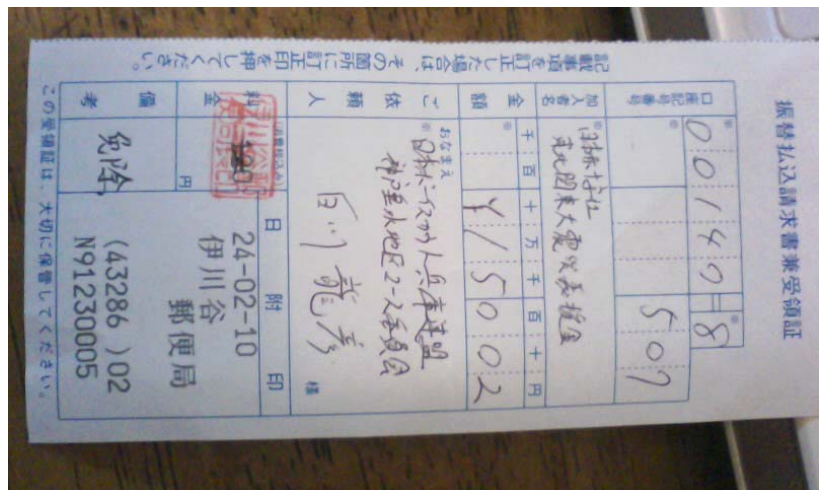 振替払込請求書兼受領証
口座記号番号
00140=8
507
加入者名
日本赤十字社
東北関東大震災義援金
金額
千百十万千百十円
¥15002
ご依頼人
おなまえ
日本ボーイスカウト兵庫連盟
神戸垂水地区2-ス委員会
様
料金
(消費税込み)
120
円
日附印
24-02-10
伊川谷
郵便局
(43286 )02
N91230005
備考
免除
記載事項を訂正した場合は、その箇所に訂正印を押してください。
この受領証は、大切に保管してください。